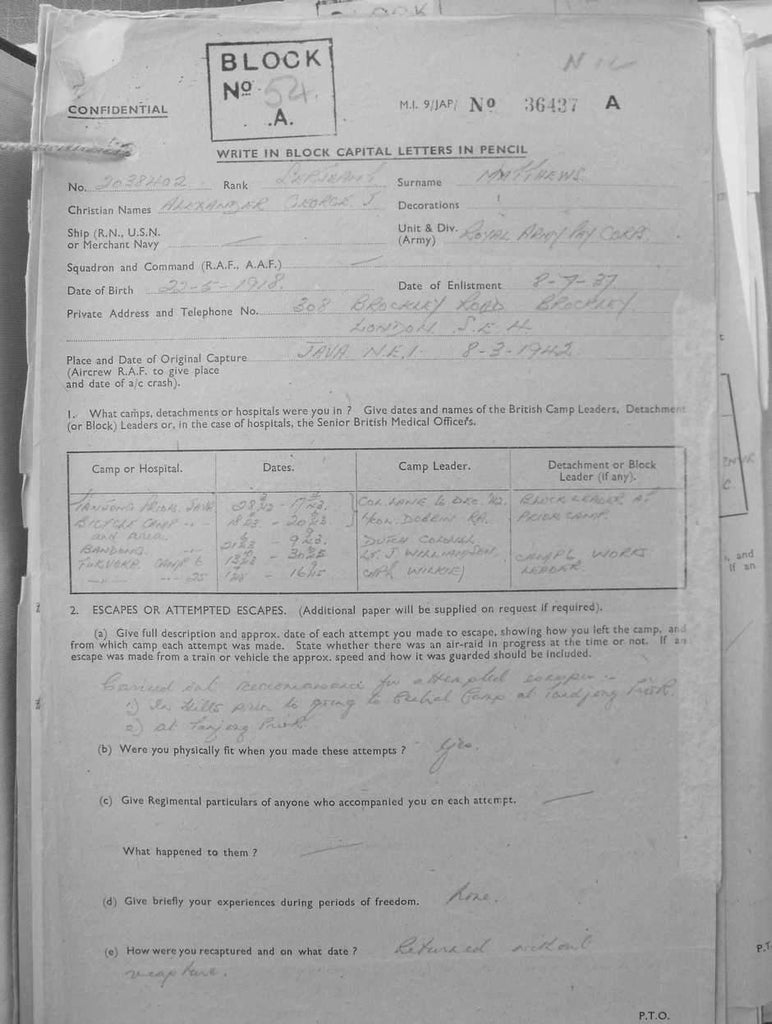 BLOCK
No 54.
.A.
CONFIDENTIAL
M.I. 9/JAP/ No 36437 A
WRITE IN BLOCK CAPITAL LETTERS IN PENCIL
No. 2038402 Rank SERJEANT Surname MATTHEWS
Christian Names ALEXANDER GEORGE J Decorations
Ship (R.N., U.S.N. or Merchant Navy — Unit & Div. (Army) ROYAL ARMY PAY CORPS.
Squadron and Command (R.A.F., A.A.F.) —
Date of Birth 22-5-1918. Date of Enlistment 8-7-37
Private Address and Telephone No. 308 BROCKLEY ROAD BROCKLEY
LONDON S.E.4
Place and Date of Original Capture JAVA N.E.I. 8-3-1942
(Aircrew R.A.F. to give place
and date of a/c crash).
1. What camps, detachments or hospitals were you in ? Give dates and names of the British Camp Leaders, Detachment
(or Block) Leaders or, in the case of hospitals, the Senior British Medical Officers.
Camp or Hospital. Dates. Camp Leader. Detachment or Block Leader (if any).
TANDJONG PRIOK. JAVA COL LANE to DEC. '42 BLOCK LEADER AT
BICYCLE CAMP DOBBIN RA. PRIOK CAMP.
and AREA. DUTCH COLONEL
BANDONG. LT. J WILLIAMSON CAMP WORKS
CAMP 6 CAPT WILKIE LEADER.
25
2. ESCAPES OR ATTEMPTED ESCAPES. (Additional paper will be supplied on request if required).
(a) Give full description and approx. date of each attempt you made to escape, showing how you left the camp, and
from which camp each attempt was made. State whether there was an air-raid in progress at the time or not. If an
escape was made from a train or vehicle the approx. speed and how it was guarded should be included.
Carried out reconnaissance for attempted escape :-
1) In hills prior to going to Central Camp at Tandjong Priok.
2) at Tanjong Priok
(b) Were you physically fit when you made these attempts ? Yes.
(c) Give Regimental particulars of anyone who accompanied you on each attempt. —
What happened to them ? —
(d) Give briefly your experiences during periods of freedom. None.
(e) How were you recaptured and on what date ? Returned without
recapture.
P.T.O.